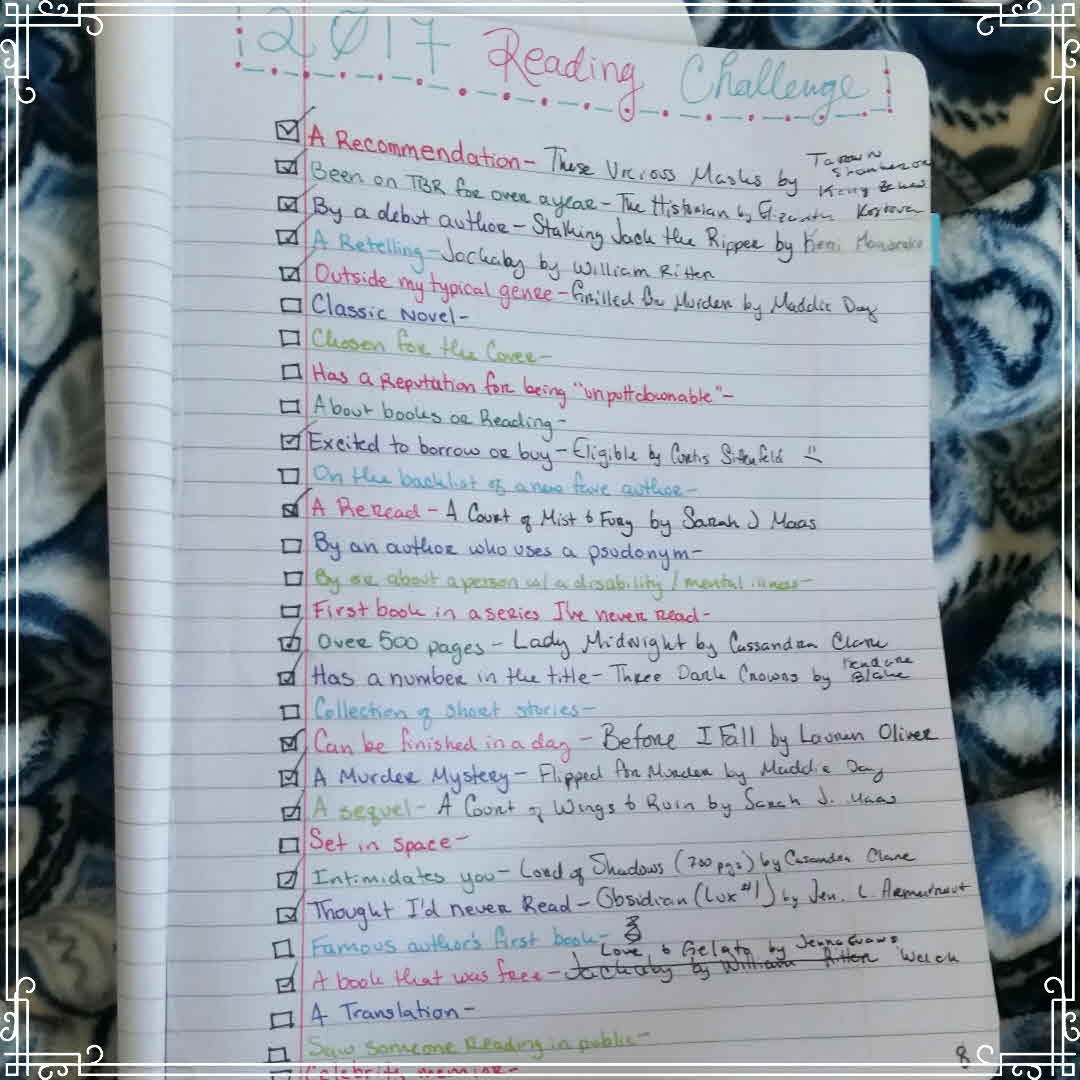 2017 Reading Challenge!
A Recommendation - These Vicious Masks by Tarun Shanker and Kelly Zekas
Been on TBR for over a year - The Historian by Elizabeth Kostova
By a debut author - Stalking Jack the Ripper by Kerri
A Retelling - Jackaby by William Ritter
Outside my typical genre - Grilled for Murder by Maddie Day
Classic Novel -
Chosen for the Cover -
Has a Reputation for being "unputtdownable" -
About books or Reading -
Excited to borrow or buy - Eligible by Curtis Sittenfeld
On the backlist of a new fave author -
A Reread - A Court of Mist & Fury by Sarah J Maas
By an author who uses a psudonym -
By or about a person w/ a disability / mental illness -
First book in a series I've never read -
Over 500 pages - Lady Midnight by Cassandra Clare
Has a number in the title - Three Dark Crowns by Kendare Blake
Collection of short stories -
Can be finished in a day - Before I Fall by Lauren Oliver
A Murder Mystery - Flipped for Murder by Maddie Day
A sequel - A Court of Wings & Ruin by Sarah J. Maas
Set in space -
Intimidates you - Lord of Shadows (700 pgs) by Casandra Clare
Thought I'd never Read - Obsidian (Lux #1) by Jen. L. Armentrout
Famous author's first book -
Love & Gelato by Jenna Evans Welch
A book that was free - Jackaby by William Ritter
A Translation -
Saw someone Reading in public -
Celebrity memoir -
8